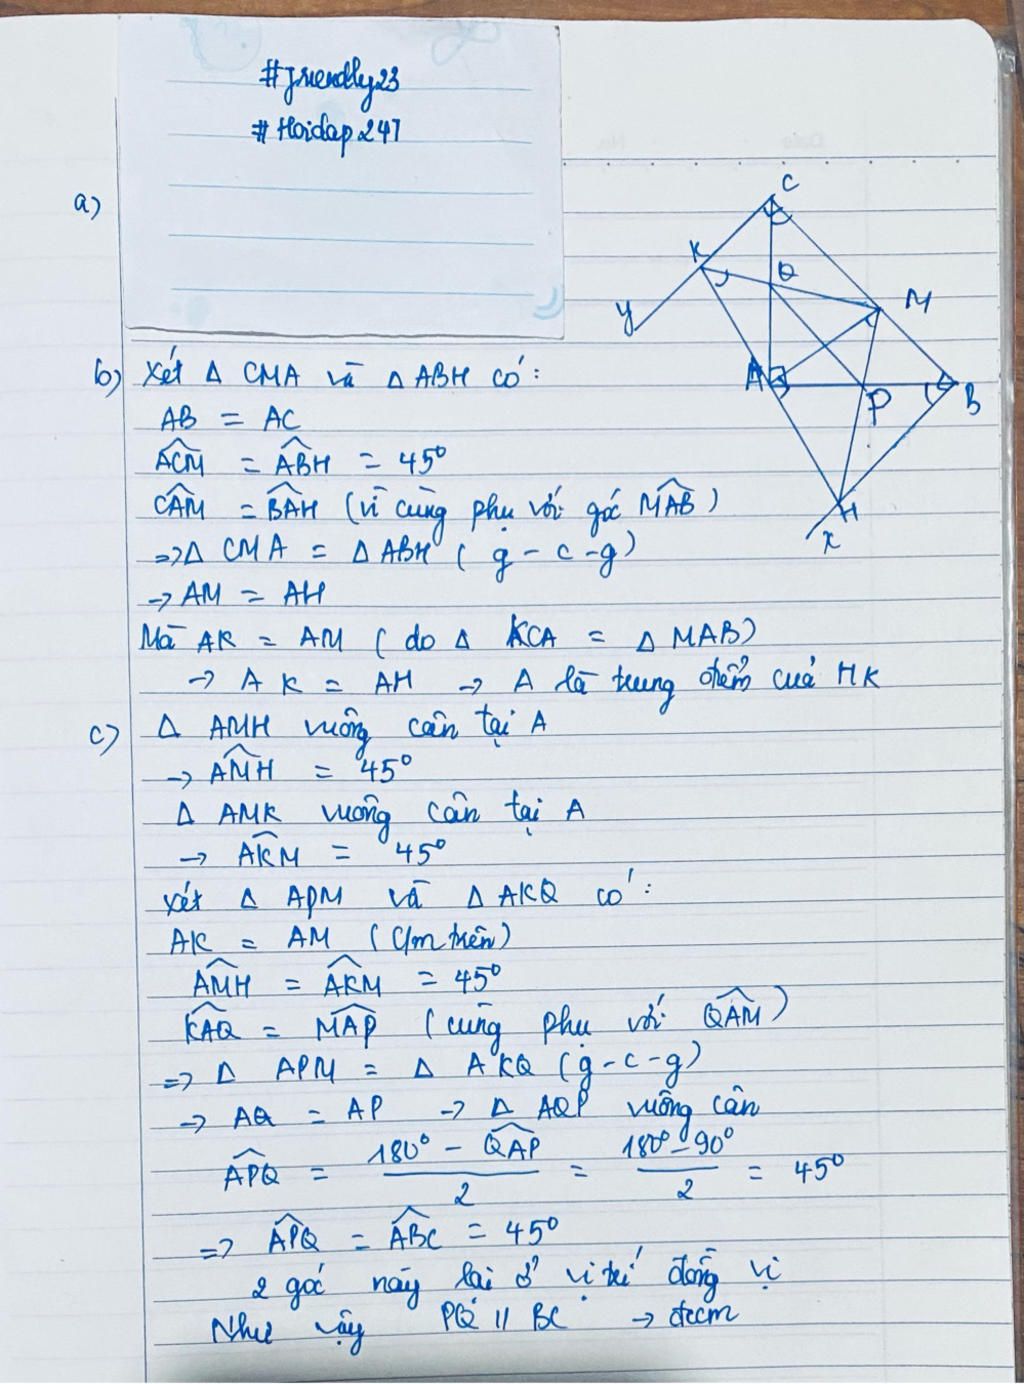 #friendly23
#Hoidap247
a)
C
K
Q
M
y
A
P
B
H
x
b) Xét Δ CMA và Δ ABH có:
AB = AC
ACM = ABH = 45°
CAM = BAH (vì cùng phụ với góc MAB)
=> Δ CMA = Δ ABH (g-c-g)
→ AM = AH
Mà AK = AM (do Δ KCA = Δ MAB)
→ AK = AH → A là trung điểm của HK
c) Δ AMH vuông cân tại A
→ AMH = 45°
Δ AMK vuông cân tại A
→ AKM = 45°
xét Δ APM và Δ AKQ có:
AK = AM (c/m trên)
AMH = AKM = 45°
KAQ = MAP (cùng phụ với QAM)
=> Δ APM = Δ AKQ (g-c-g)
→ AQ = AP → Δ AQP vuông cân
APQ = (180° - QAP)/2 = (180° - 90°)/2 = 45°
=> APQ = ABC = 45°
2 góc này lại ở vị trí đồng vị
Như vậy PQ // BC → đccm